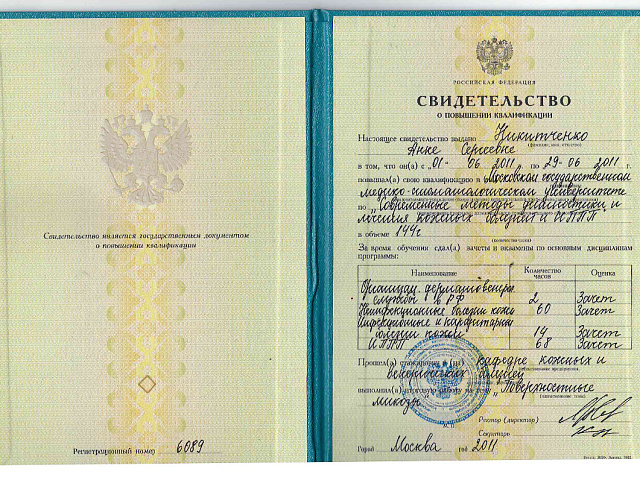 Свидетельство является государственным документом
о повышении квалификации
Регистрационный номер 6089
РОССИЙСКАЯ ФЕДЕРАЦИЯ
СВИДЕТЕЛЬСТВО
О ПОВЫШЕНИИ КВАЛИФИКАЦИИ
Настоящее свидетельство выдано Никитченко
(фамилия, имя, отчество)
Анне Сергеевне
в том, что он(а) с „01" 06 2011 г. по „29" 06 2011 г.
повышал(а) свою квалификацию в Московском государственном
медико-стоматологическом университете
по „Современные методы диагностики и
лечения кожных болезней и ИППП"
в объеме 144 г
(количество часов)
За время обучения сдал(а) зачеты и экзамены по основным дисциплинам
программы:
Наименование Количество часов Оценка
Организац. дерматовенеро
службы в РФ 2 Зачет
Неинфекционные болезни кожи 60 Зачет
Инфекционные и паразитарные
болезни кожи 14 Зачет
ИППП 68 Зачет
Прошел(а) стажировку в (на) кафедре кожных и
венерических болезней
выполнил(а) итоговую работу на тему „Поверхностные
(наименование темы)
микозы"
Ректор (директор)
Секретарь
Город Москва год 2011